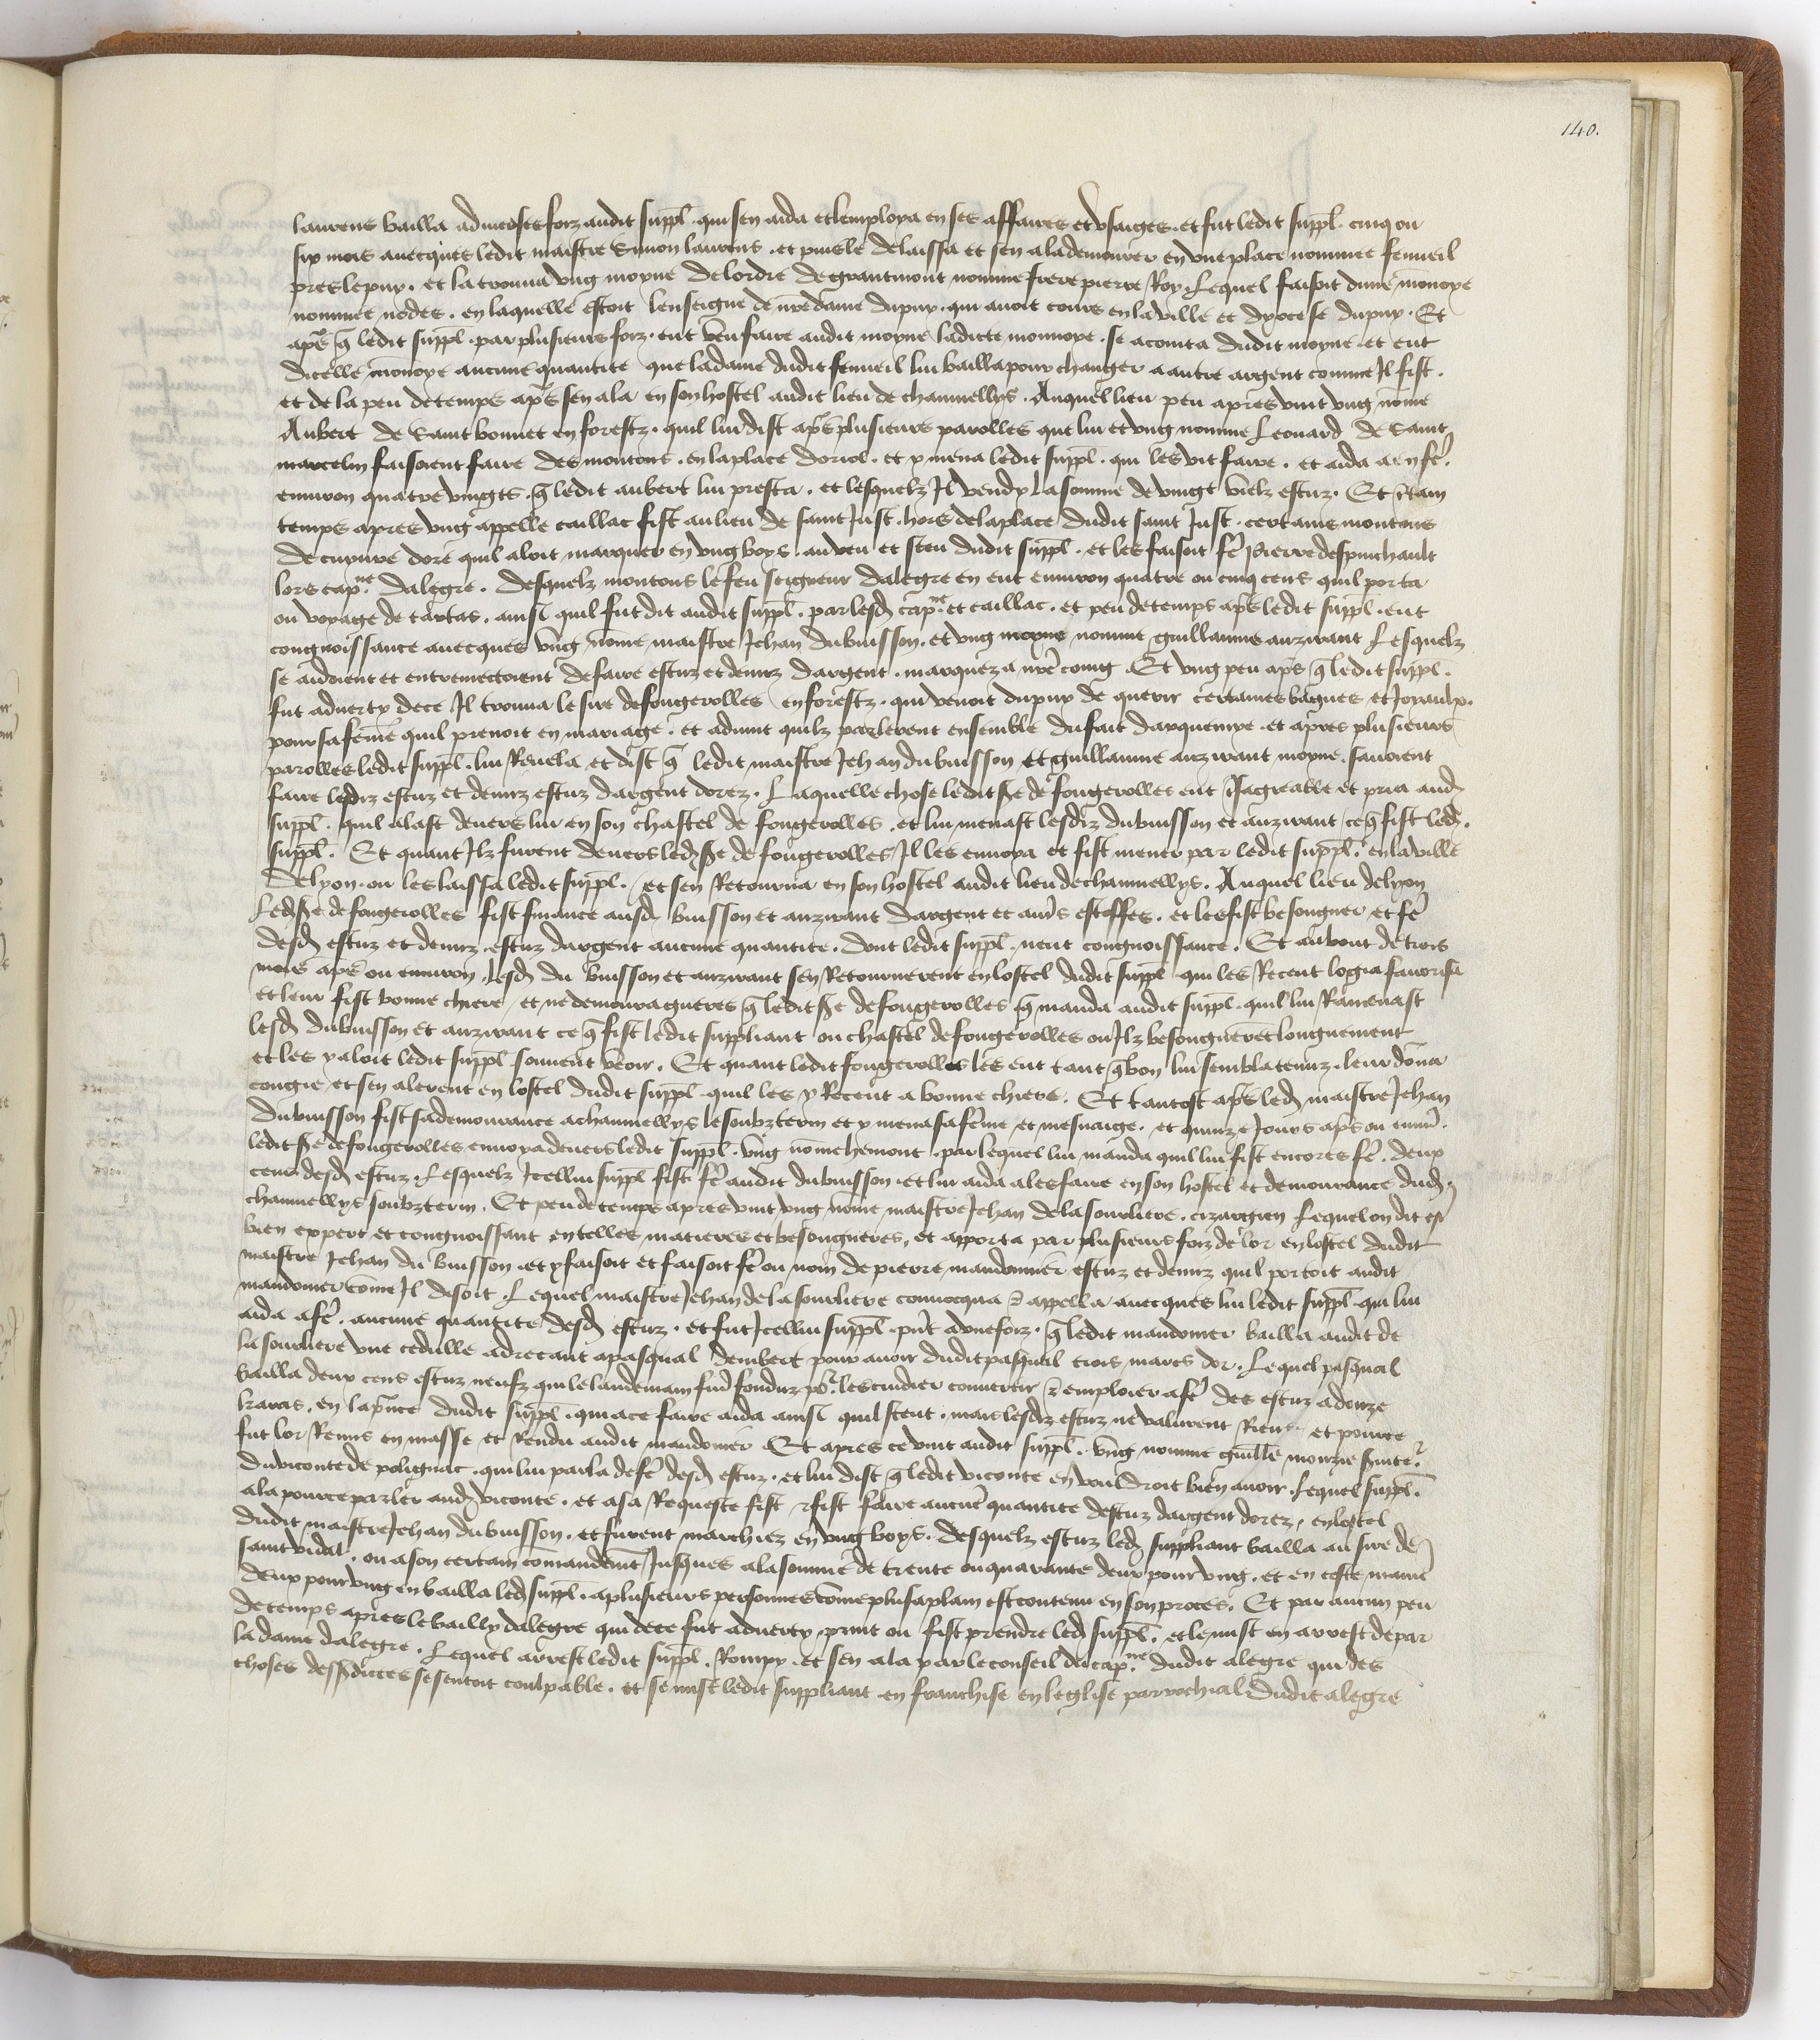 140.
laurens bailla admenistres foiz audit suppl. qui sen aida et lemploya en ses affaires et usaiges. et fut ledit suppl. cinq ou
six mois avecques ledit maistre Simon laurens. et puis le delaissa et sen ala demourer en une place nommee feuneil
pres le puy. et la trouva ung moyne de lordre de grantmont nomme frere pierre Roy. Lequel faisoit dune monoye
nommee nodes. en laquelle estoit lenseigne de nre dame du puy. qui avoit cours en la ville et dyocese du puy. Et
apres q ledit suppl. par plusieurs foiz. eut veu faire audit moyne ladicte monnoye. se acointa dudit moyne. et eut
dicelle monoye aucune quantite que la dame dudit feuneil lui bailla pour changer a autre argent comme Il fist.
et de la peu de temps apres sen ala en son hostel audit lieu de chaumellys. Auquel lieu peu apres vint ung nome
Aubert de Saint bonnet en forestz. quil lui dist apres plusieurs parolles que lui et ung nomme Leonard de Saint
marcelin faisoient faire des moutons. en la place doriol. et y mena ledit suppl. qui les vit faire. et aida a en fe.
environ quatre vingts. q ledit aubert lui presta. et lesquelz Il vendy la somme de vingt vielz escuz. Et certain
temps apres ung appelle caillac fist au lieu de saint Just. hors de la place dudit saint Just. certains moutons
de cuyvre dore quil aloit marquer en ung boys. au veu et sceu dudit suppl. et les faisoit fe pierre despinchault
lors cap.ne dalegre. desquelz moutons le feu seigneur dalegre en eut environ quatre ou cinq cens quil porta
ou voyage de tartas. ainsi quil fut dit audit suppl. par lesd cap.ne et caillac. et peu de temps apres ledit suppl. eut
congnoissance avecques ung nome maistre Jehan du buisson. et ung moyne nomme guillaume auzirant Lesquelz
se aidoient et entremectoient de faire escuz et demiz dargent. marquez a nre coing. Et ung peu apres q ledit suppl.
fut adverty de ce Il trouva le sire de fougerolles en forestz. qui venoit du puy de querir certaines bagues et Joyaulx.
pour sa feme quil prenoit en mariage. et advint quilz parlerent ensemble du fait darquemye. et apres plusieurs
parolles ledit suppl. lui Revela et dist q ledit maistre Jehan du buisson et guillaume auzirant moyne. sauoient
faire lesdiz escuz et demiz escuz dargent dorez. Laquelle chose ledit sr de fougerolles eut agreable et pria aud
suppl. quil alast devers lui en son chastel de fougerolles. et lui menast lesdiz du buisson et auzirant ce q fist led.
suppl. Et quant Ilz furent devers led sr de fougerolles Il les envoya et fist mener par ledit suppl. en la ville
de lyon. ou les laissa ledit suppl. et sen Retourna en son hostel audit lieu de chaumellys. Auquel lieu de lyon
Led sr de fougerolles fist finance ausd buisson et auzirant dargent et autres estoffes. et les fist besongner et fe
desd escuz et demiz escuz dargent aucune quantite. dont ledit suppl. neut congnoissance. Et au bout de trois
mois apres ou environ. lesd du buisson et auzirant sen Retournerent en lostel dudit suppl qui les Receut logia favorisa
et leur fist bonne chiere et ne demoura gueres q ledit sr de fougerolles q manda audit suppl. quil lui Ramenast
lesd du buisson et auzirant ce q fist ledit suppliant ou chastel de fougerolles ou Ilz besongnerent longuement
et les y aloit ledit suppl souvent veoir. Et quant ledit fougerolles les eut tant q bon lui sembla tenuz. leur dona
congie et sen alerent en lostel dudit suppl. quil les y Receut a bonne chiere. Et tantost apres led maistre Jehan
du buisson fist sa demourance a chaumellys le soubzterin et y mena sa feme et mesnaige. et quinze Jours apres ou envi.
ledit sr de fougerolles envoya devers ledit suppl. ung nome hemont. par lequel lui manda quil lui fist encores fe. deux
cens desd escuz. Lesquelz Icellui suppl fist fe audit du buisson. et lui aida a les faire en son hostel et demourance dud.
chaumellys soubzterin. Et peu de temps apres vint ung nome maistre Jehan de la sourliere. cirargien Lequel on dit est
bien expert et congnoissant en telles matieres et besongneres, et apporta par plusieurs foiz de lor en lostel dudit
maistre Jehan du buisson. et y faisoit et faisoit fe ou nom de pierre mandonier escuz et demiz quil portoit audit
mandonier come Il disoit Lequel maistre Jehan de la sourliere convocqua & appella avecques lui ledit suppl. qui lui
aida a fe. aucune quantite desd escuz. et fut Icellui suppl. pnt a une foiz. q ledit mandonier bailla audit de
la sourliere une cedulle adrecant a pasqual dembert pour avoir dudit pasqual trois marcs dor. Lequel pasqual
bailla deux cens escuz neufz qui le landemain furent fonduz po.r les cuidier convertir & emploier a fe des escuz a douze
karas. en la pnce dudit suppl. qui a ce faire aida ainsi quil sceut. mais lesdiz escuz ne valurent Riens et pource
fut lor Remis en masse et Rendu audit mandonier. Et apres ce vint audit suppl. ung nomme guille mourie servite.r
du viconte de polignac. qui lui parla de fe desd escuz. et lui dist q ledit viconte en vouldroit bien avoir. Lequel suppl.
ala pource parler aud viconte. et a sa Requeste fist & fist faire aucune quantite descuz dargent dorez. en lostel
dudit maistre Jehan du buisson. et furent marchiez en ung boys. desquelz escuz led suppliant bailla au sire de
saint vidal. ou a son certain comandemt Jusques a la somme de trente ou quarante deux pour ung. et en ceste maniere
deux pour ung en bailla led suppl. a plusieurs personnes come plus a plain est contenu en son proces. Et par aucun peu
de temps apres le bailly dalegre qui de ce fut adverty print ou fist prendre led suppl. et le mist en arrest de par
la dame dalegre. Lequel arrest ledit suppl. Rompy. et sen ala par le conseil du cap.ne dudit alegre qui des
choses dessusdictes se sentoit coulpable. et se mist ledit suppliant en franchise en leglise parrochial dudit alegre